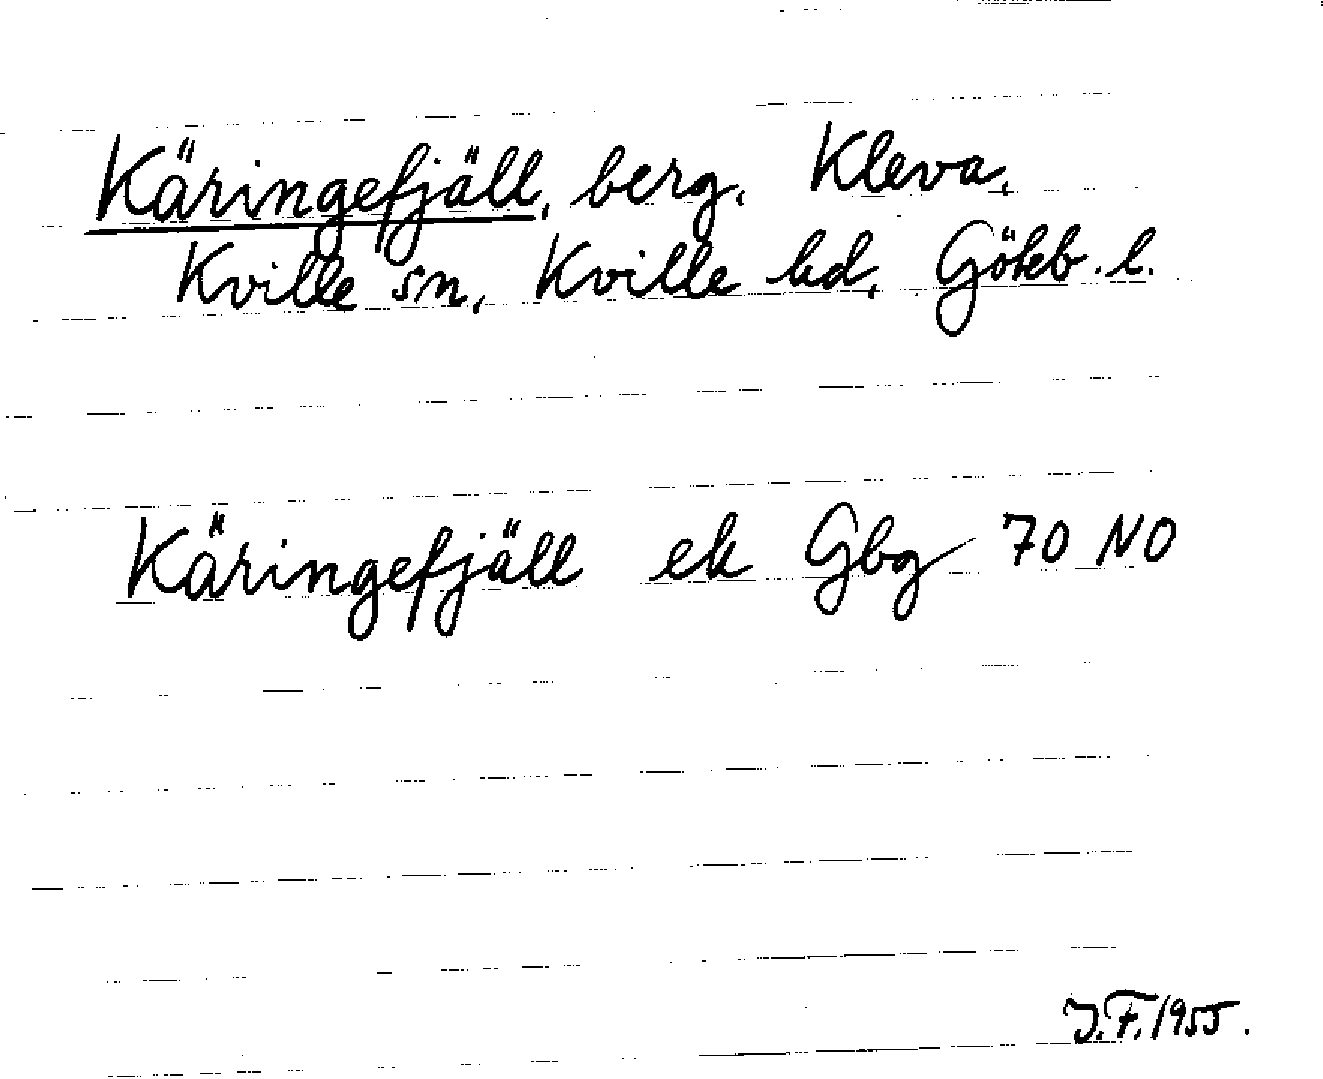 Käringefjäll, berg, Kleva,
Kville sn, Kville hd, Göteb. l.
Käringefjäll ek Gbg 70 NO
J.F. 1955.